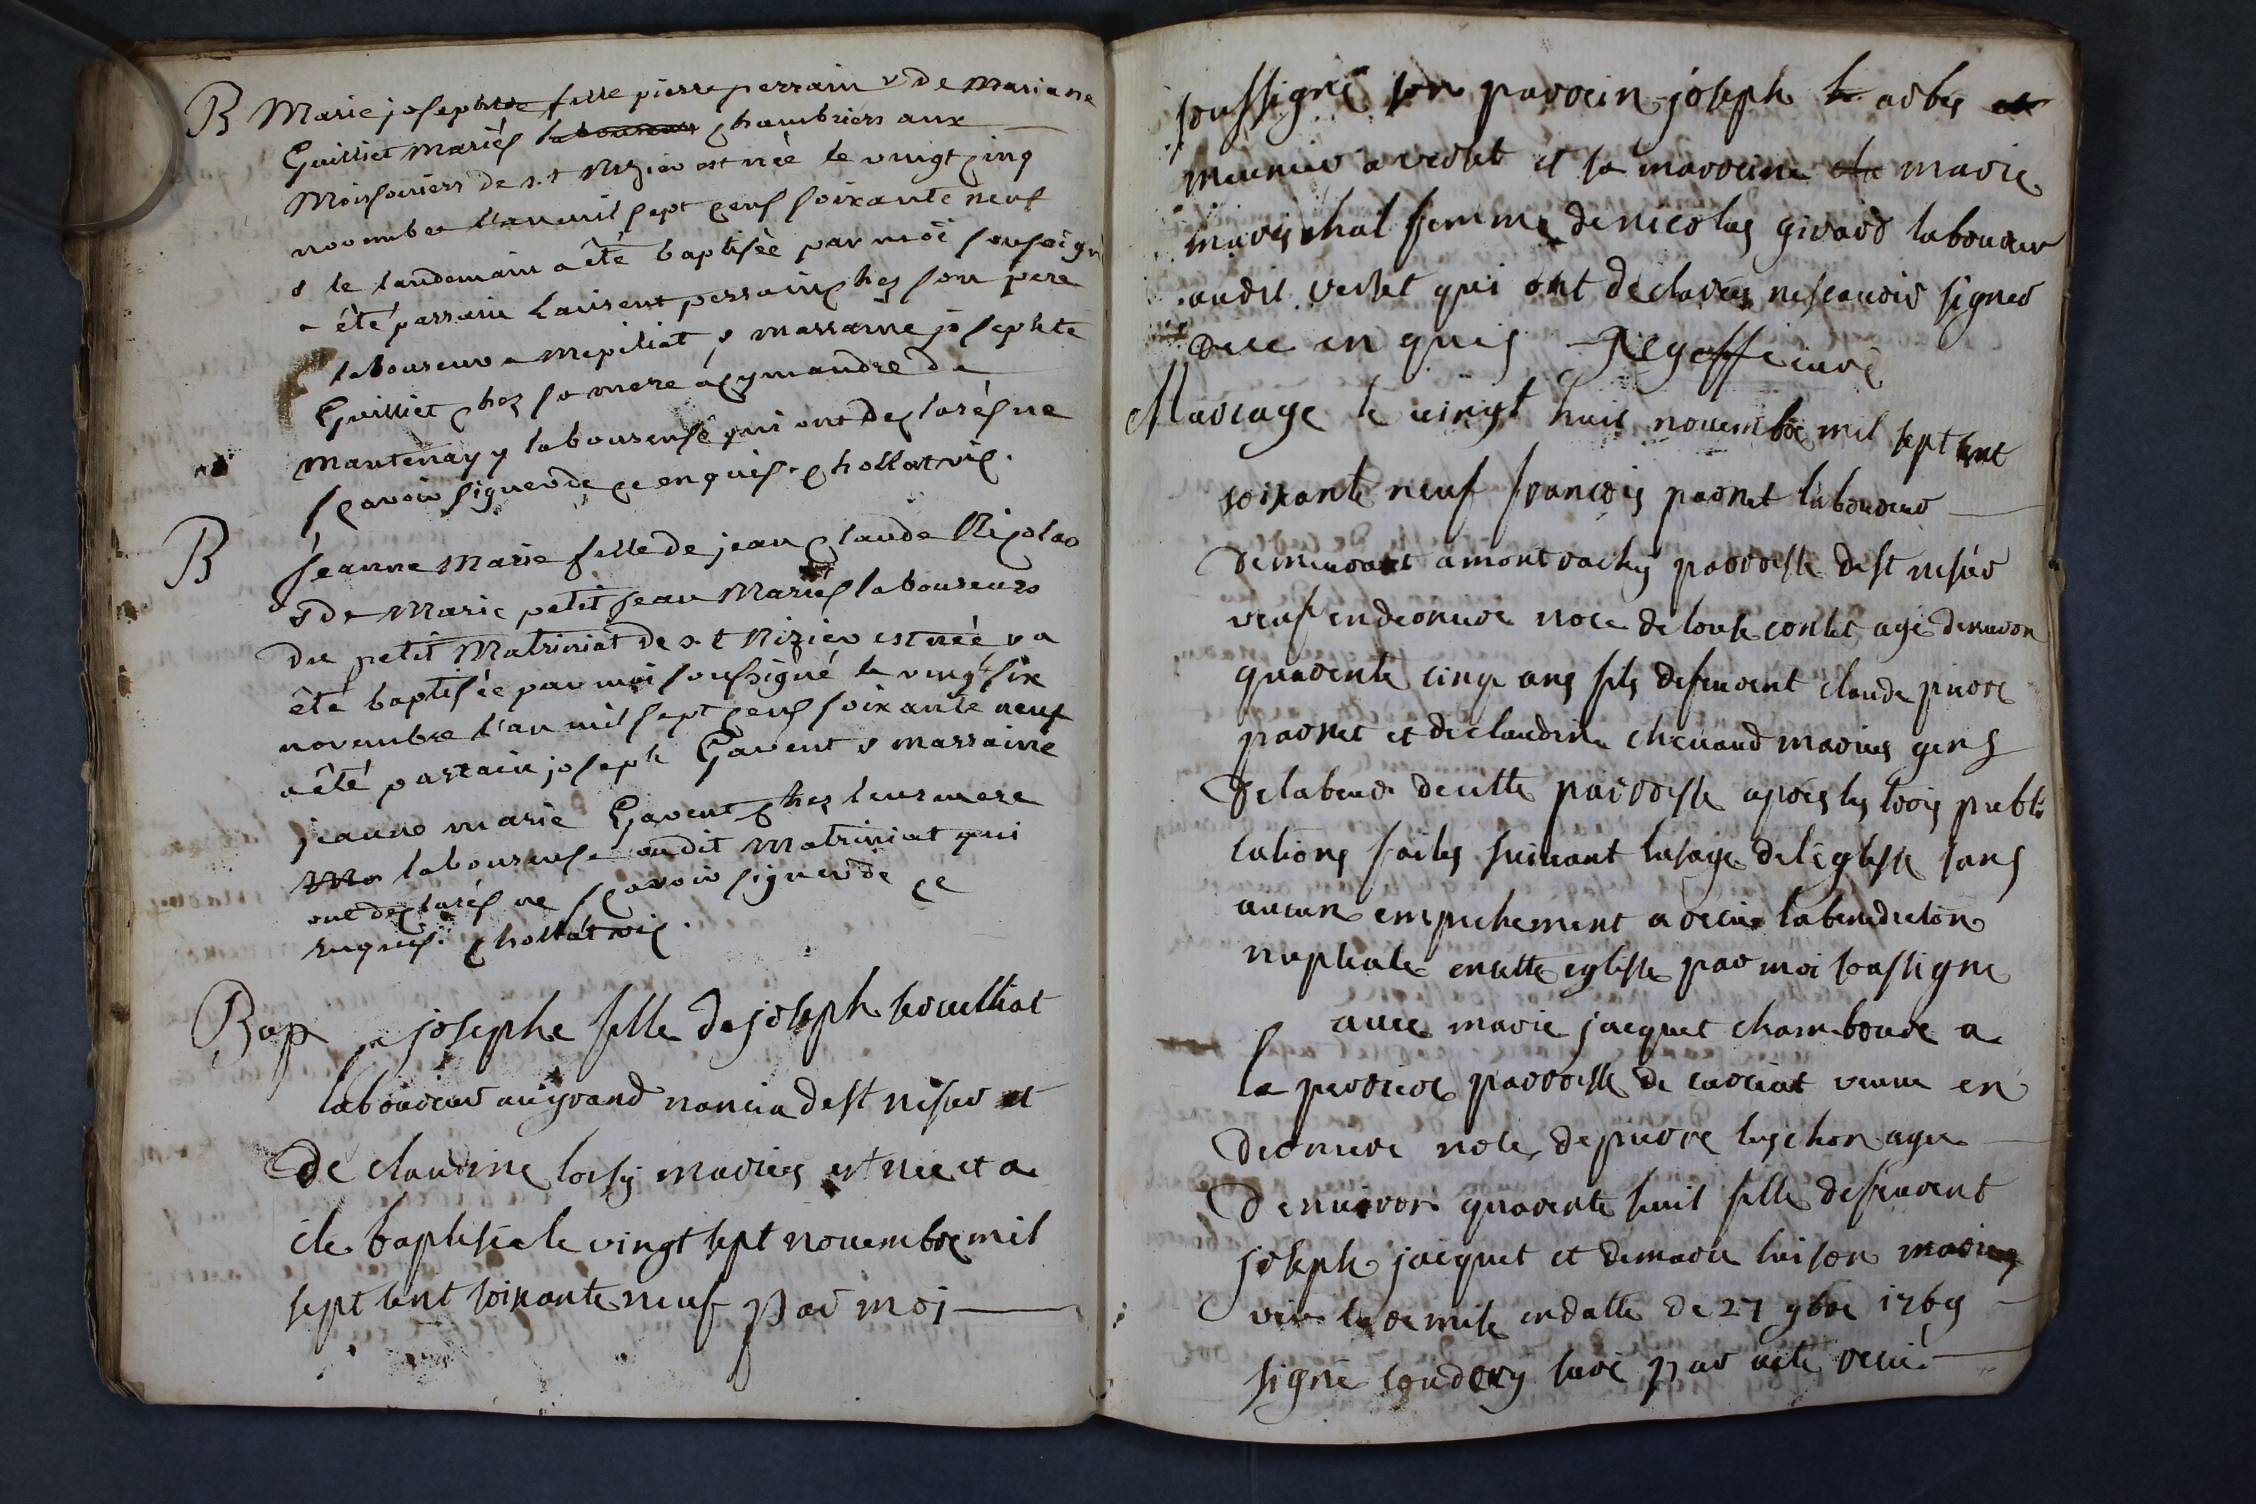 B Marie josephte fille pierre perrain & de Mariane
Guilliet Mariés laboureurs chambriers aux
Moissoniers de s.t Nizier est née le vingt cinq
novembre l'an mil sept cens soixante neuf
& le landemain a êté baptisée par moi soussign
a êté parrain Laurent perrain chez son pere
laboureur a mepiliat & marraine josephte
Guilliet chez sa mere a cymandre de
mantenay laboureuse qui ont declarés ne
sçavoir signer de ce enquis. chollat vic.
B Jeanne Marie fille de jean claude Nicolas
& de Marie petit jean Mariés laboureurs
du petit Matriniat de s.t Nizier est née & a
êté baptisée par moi soussigné le vingt six
novembre l'an mil sept cens soixante neuf
a êté parrain joseph Gavent & marraine
jeanne marie Gavent chez leur mere
laboureuse audit Matriniat qui
ont declarés ne sçavoir signer de ce
enquis. chollat vic.
Bap josephe fille de joseph
laboureur au grand nancia de st nisier et
de claudine loisy maries est nee et a
ete baptisée le vingt sept nouembre mil
sept cent soixante neuf par moi
soussigné son parrein joseph
meunier a veslet et sa marreine marie
mareschal femme de nicolas girard laboureur
audit veslet qui ont declarés ne scauoir signer
dece enquis curé
Mariage le vingt huit nouembre mil sept cent
soixante neuf francois parnet laboureur
demeurant a montrachy parroisse de st nisier
veuf en derniere noce de louise contet agé denuiron
quarente cinq ans fils defeu claude pierre
parnet et de claudine chevaud maries gens
de labeur de cette parroisse apres les trois publi
cations faites suiuant lusage de léglisse sans
aucun empechement a recu la benediction
nuptiale en cette eglisse par moi soussigne
auec marie jacquet chamboure a
la parroisse de curciat veuue en
derniere noce de pierre luychon agee
denuiron quarente huit fille defeu
joseph jacquet et de marie luison maries
veu la remise en datte de 27 9bre 1769
signé coudery curé par acte recu